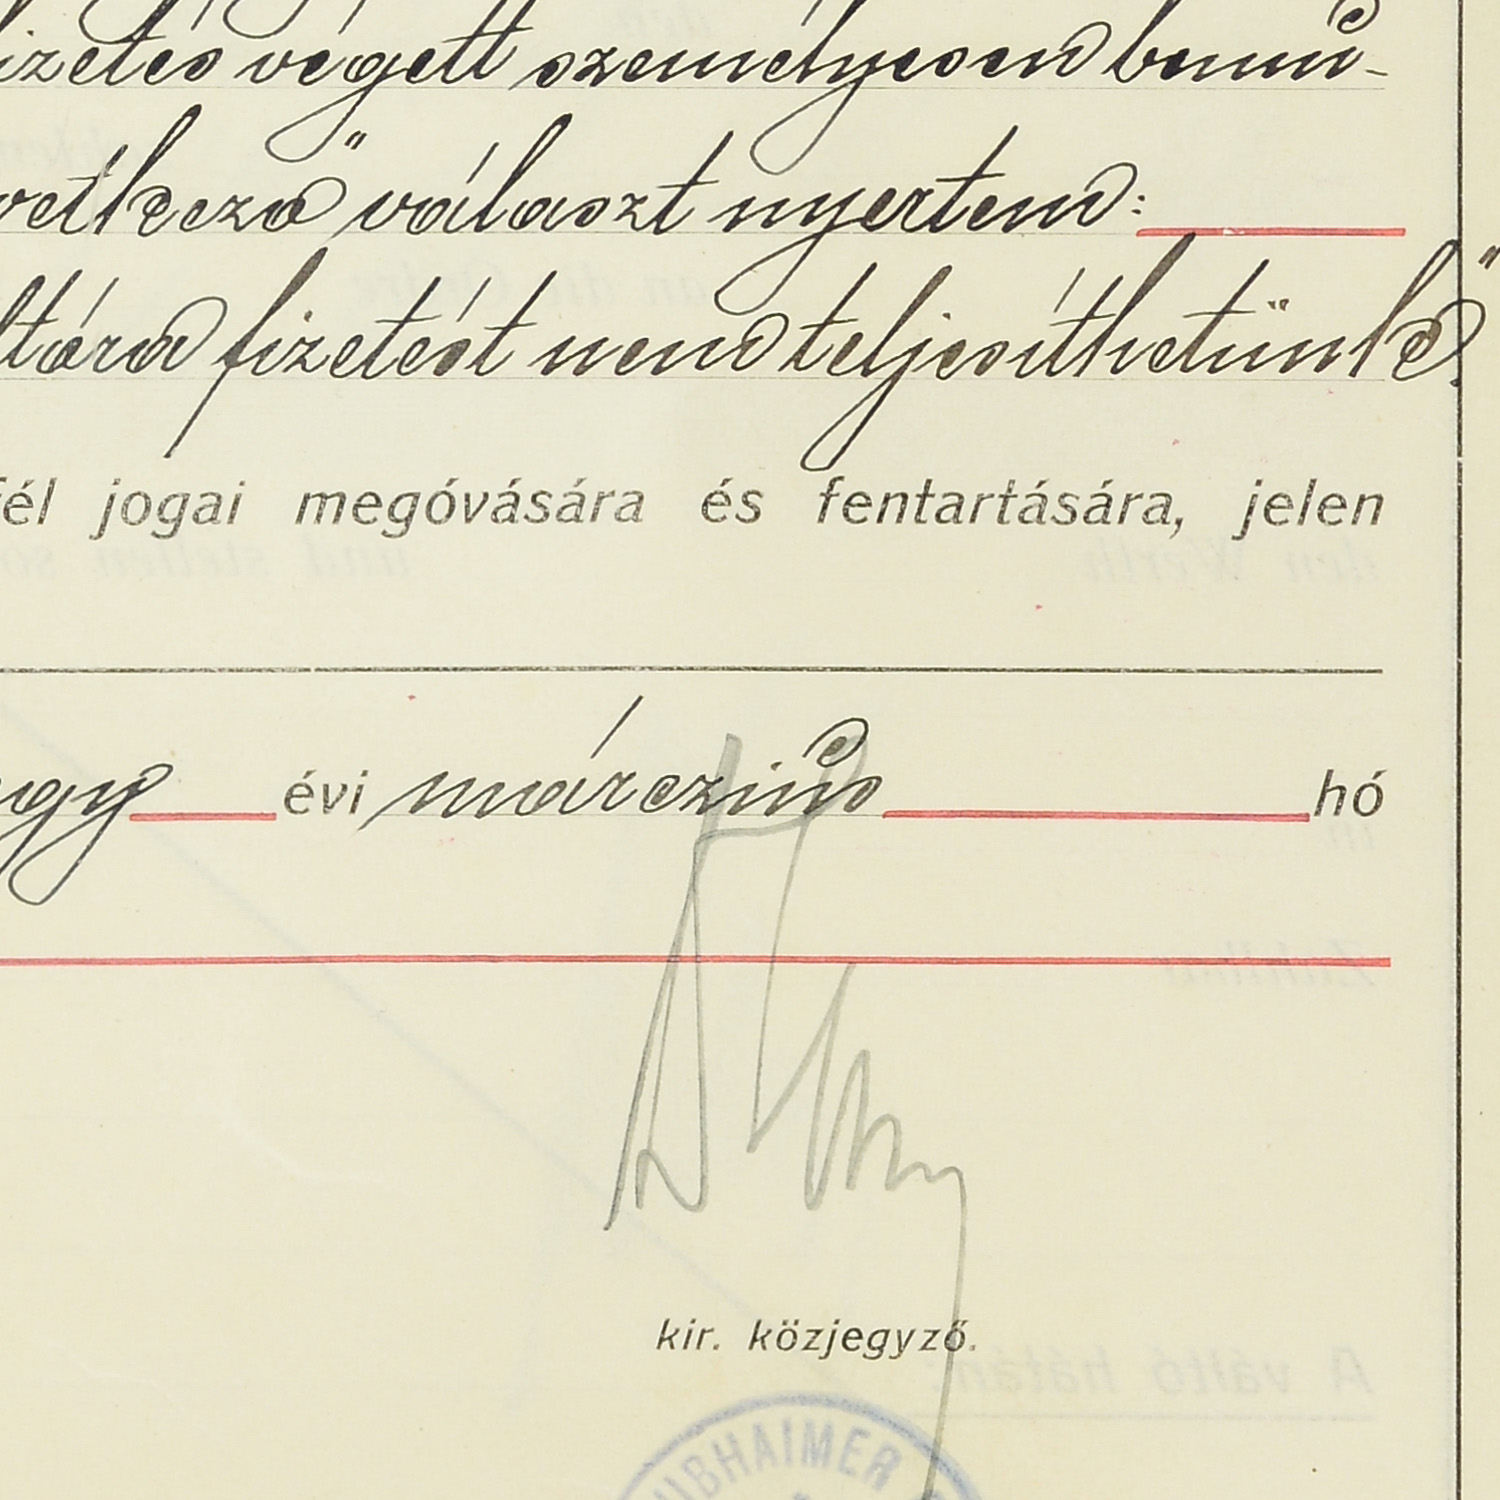 fizetés végett személyesen bemu-
vetkező választ nyertem:
fizetést nem teljesíthetünk".
fél jogai megóvására és fentartására, jelen
évi márczius hó
kir. közjegyző.
UBHAIMER